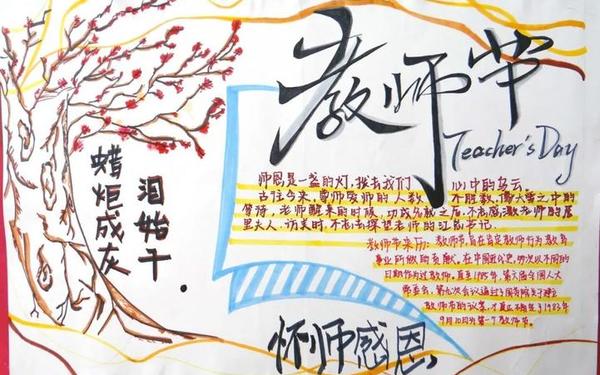 教师节
Teacher's Day
蜡炬成灰
泪始干.
师恩是一盏的灯,拨去我们 心中的乌云。
古往今来,尊师爱师的人数 不胜数,
老师醒来的时候,功成名就之后,不忘感激老师的居
里夫人,访美时,不忘去探望老师的红
教师节来历:教师节,旨在肯定教师行为教育
事业所做的贡献。在中国近代史,以不同的
日期作为过教师,直至1985年,第六届全国人大
常委会,第九次会议通过了国务院关于建立
教师节的议案,
9月10日为第一个教师节。
怀师感恩